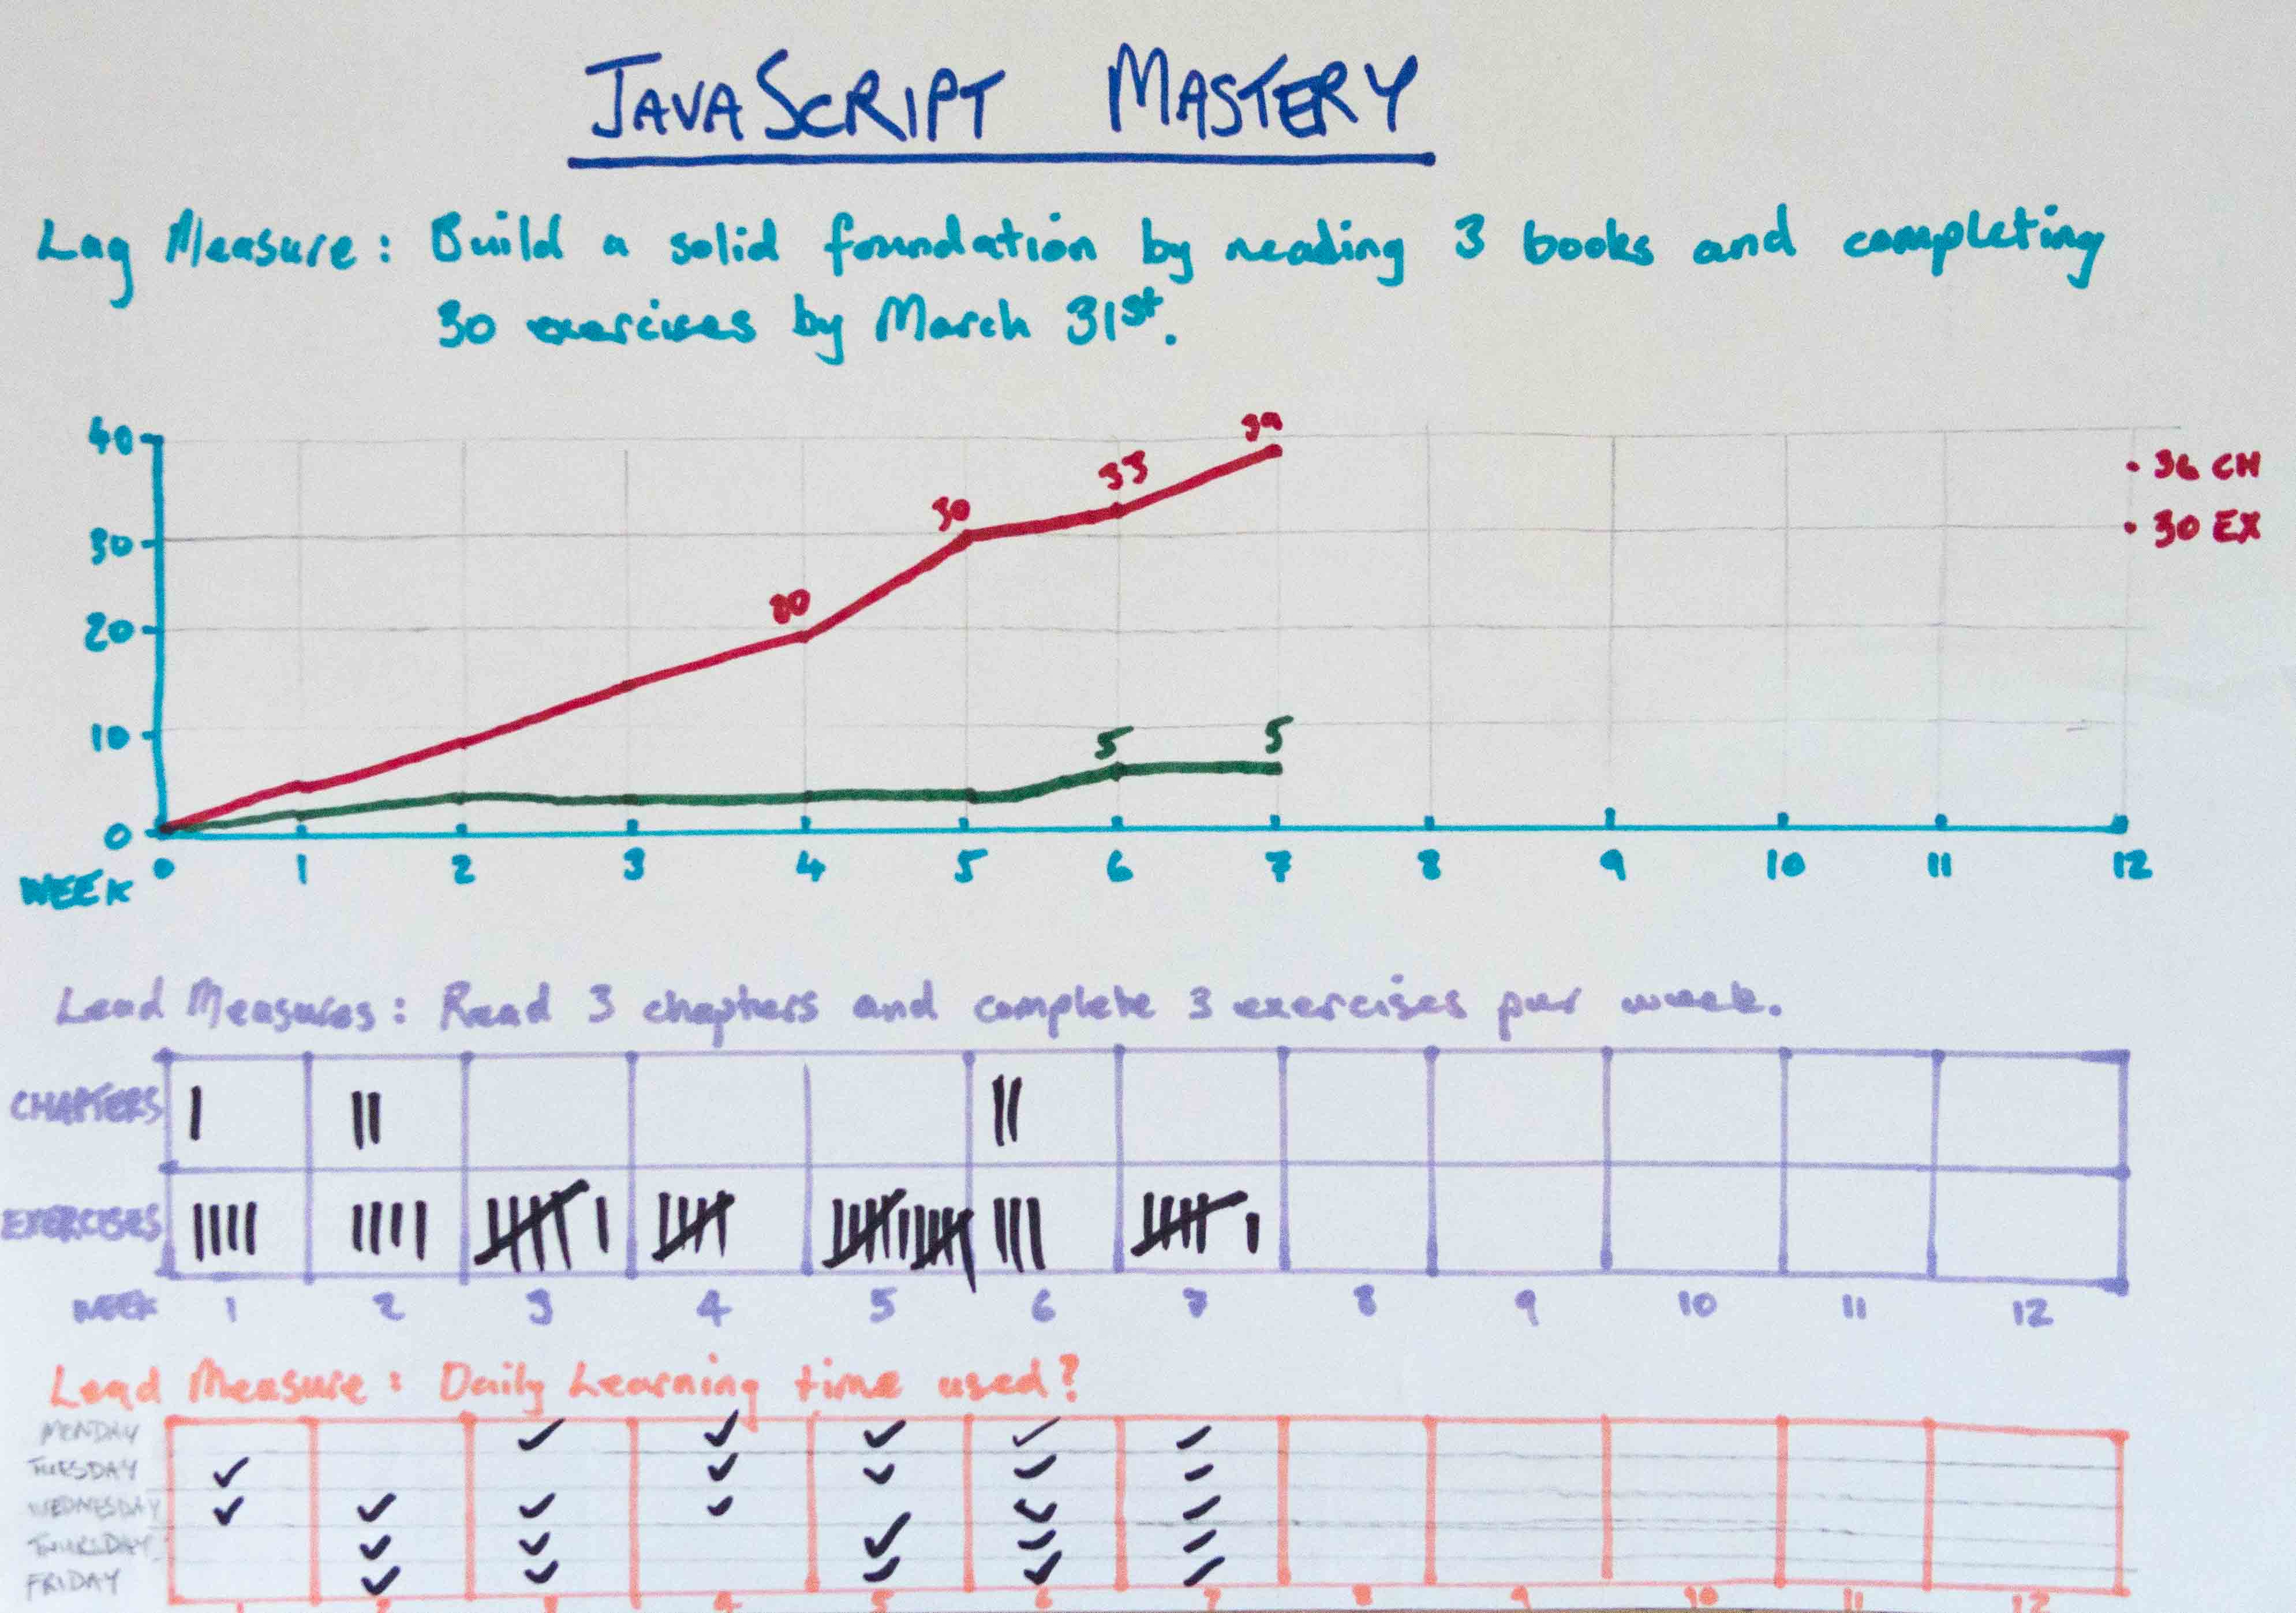 JAVASCRIPT MASTERY
Lag Measure: Build a solid foundation by reading 3 books and completing
30 exercises by March 31st.
40
30
20
10
0
20
30
33
39
5
5
• 36 CH
• 30 EX
WEEK 0 1 2 3 4 5 6 7 8 9 10 11 12
Lead Measures: Read 3 chapters and complete 3 exercises per week.
CHAPTERS
EXERCISES
WEEK 1 2 3 4 5 6 7 8 9 10 11 12
Lead Measure: Daily Learning time used?
MONDAY
TUESDAY
WEDNESDAY
THURSDAY
FRIDAY
1 2 3 4 5 6 7 8 9 10 11 12